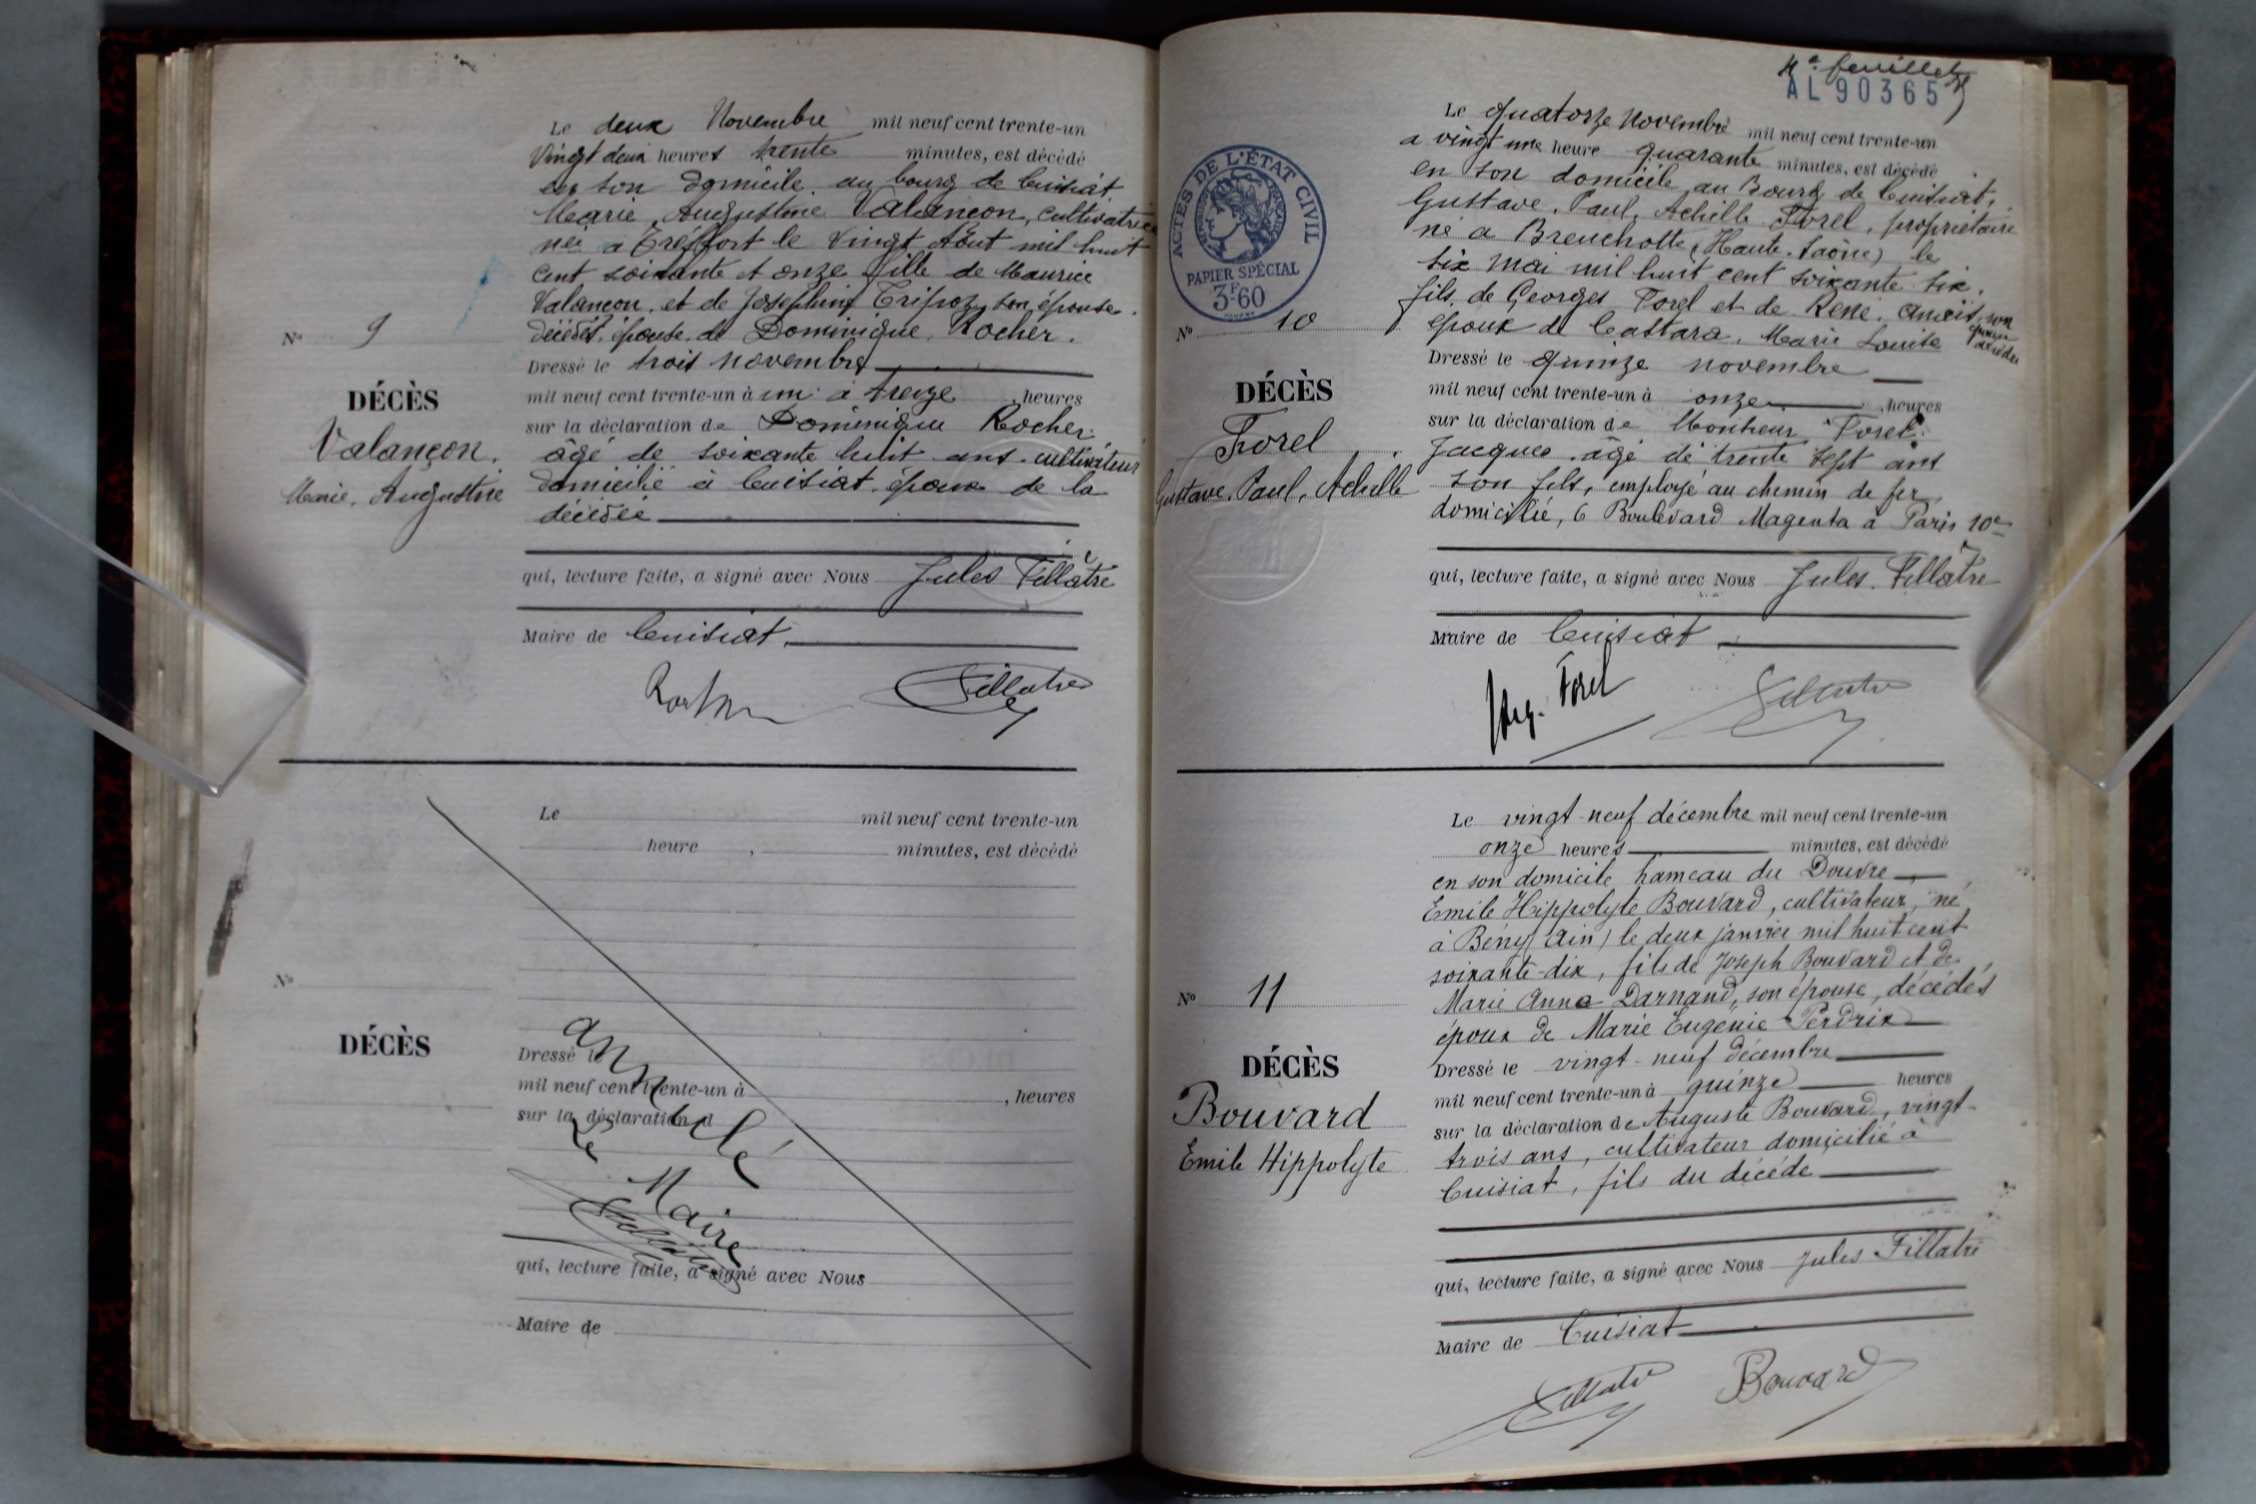 Le deux Novembre mil neuf cent trente-un
Vingt deux heures trente minutes, est décédé
en son domicile au bourg de Cuisiat
Marie, Augustine Valançon, cultivatrice
née à Tréffort le Vingt Août mil huit
cent soixante et onze fille de Maurice
Valançon, et de Joséphine Tripoz, son épouse.
décédés, épouse de Dominique Rocher.
Dressé le trois novembre
mil neuf cent trente-un à treize heures
sur la déclaration de Dominique Rocher
âgé de soixante huit ans cultivateur
domicilié à Cuisiat époux de la
décédée
qui, lecture faite, a signé avec Nous Jules Fillâtre
Maire de Cuisiat.
Fillatre
N° 9
DÉCÈS
Valançon.
Marie, Augustine
Le mil neuf cent trente-un
heure , minutes, est décédé
N°
DÉCÈS
Dressé le
mil neuf cent trente-un à , heures
sur la déclaration d
annulé
Le Maire
Fillatre
qui, lecture faite, a signé avec Nous
Maire de
4e feuillet
AL 90365
ACTES DE L'ÉTAT CIVIL
PAPIER SPÉCIAL
3F60
Le quatorze Novembre mil neuf cent trente-un
a vingt une heure quarante minutes, est décédé
en son domicile, au Bourg de Cuisiat,
Gustave, Paul, Achille Forel, propriétaire
né a Breuchotte (Haute-Saône) le
six Mai mil huit cent soixante six.
fils de Georges Forel et de René. son
époux décédés
époux de Castara, Marie Louise
Dressé le quinze novembre
mil neuf cent trente-un à onze heures
sur la déclaration de Monsieur Forel
Jacques âgé de trente sept ans
son fils, employé au chemin de fer
domicilié, 6 Boulevard Magenta à Paris 10e
qui, lecture faite, a signé avec Nous Jules Fillâtre
Maire de Cuisiat
Jacq. Forel Fillatre
N° 10
DÉCÈS
Forel
Gustave, Paul, Achille
Le vingt-neuf décembre mil neuf cent trente-un
onze heures minutes, est décédé
en son domicile hameau du Douvre
Emile Hippolyte Bouvard, cultivateur, né
à Bény (Ain) le deux janvier mil huit cent
soixante-dix, fils de Joseph Bouvard et de
Marie Anne Darnand, son épouse, décédés
époux de Marie Eugénie Perdrix
Dressé le vingt-neuf décembre
mil neuf cent trente-un à quinze heures
sur la déclaration de Auguste Bouvard, vingt-
trois ans, cultivateur domicilié à
Cuisiat, fils du décédé
qui, lecture faite, a signé avec Nous Jules Fillatre
Maire de Cuisiat
Fillatre Bouvard
N° 11
DÉCÈS
Bouvard
Emile Hippolyte